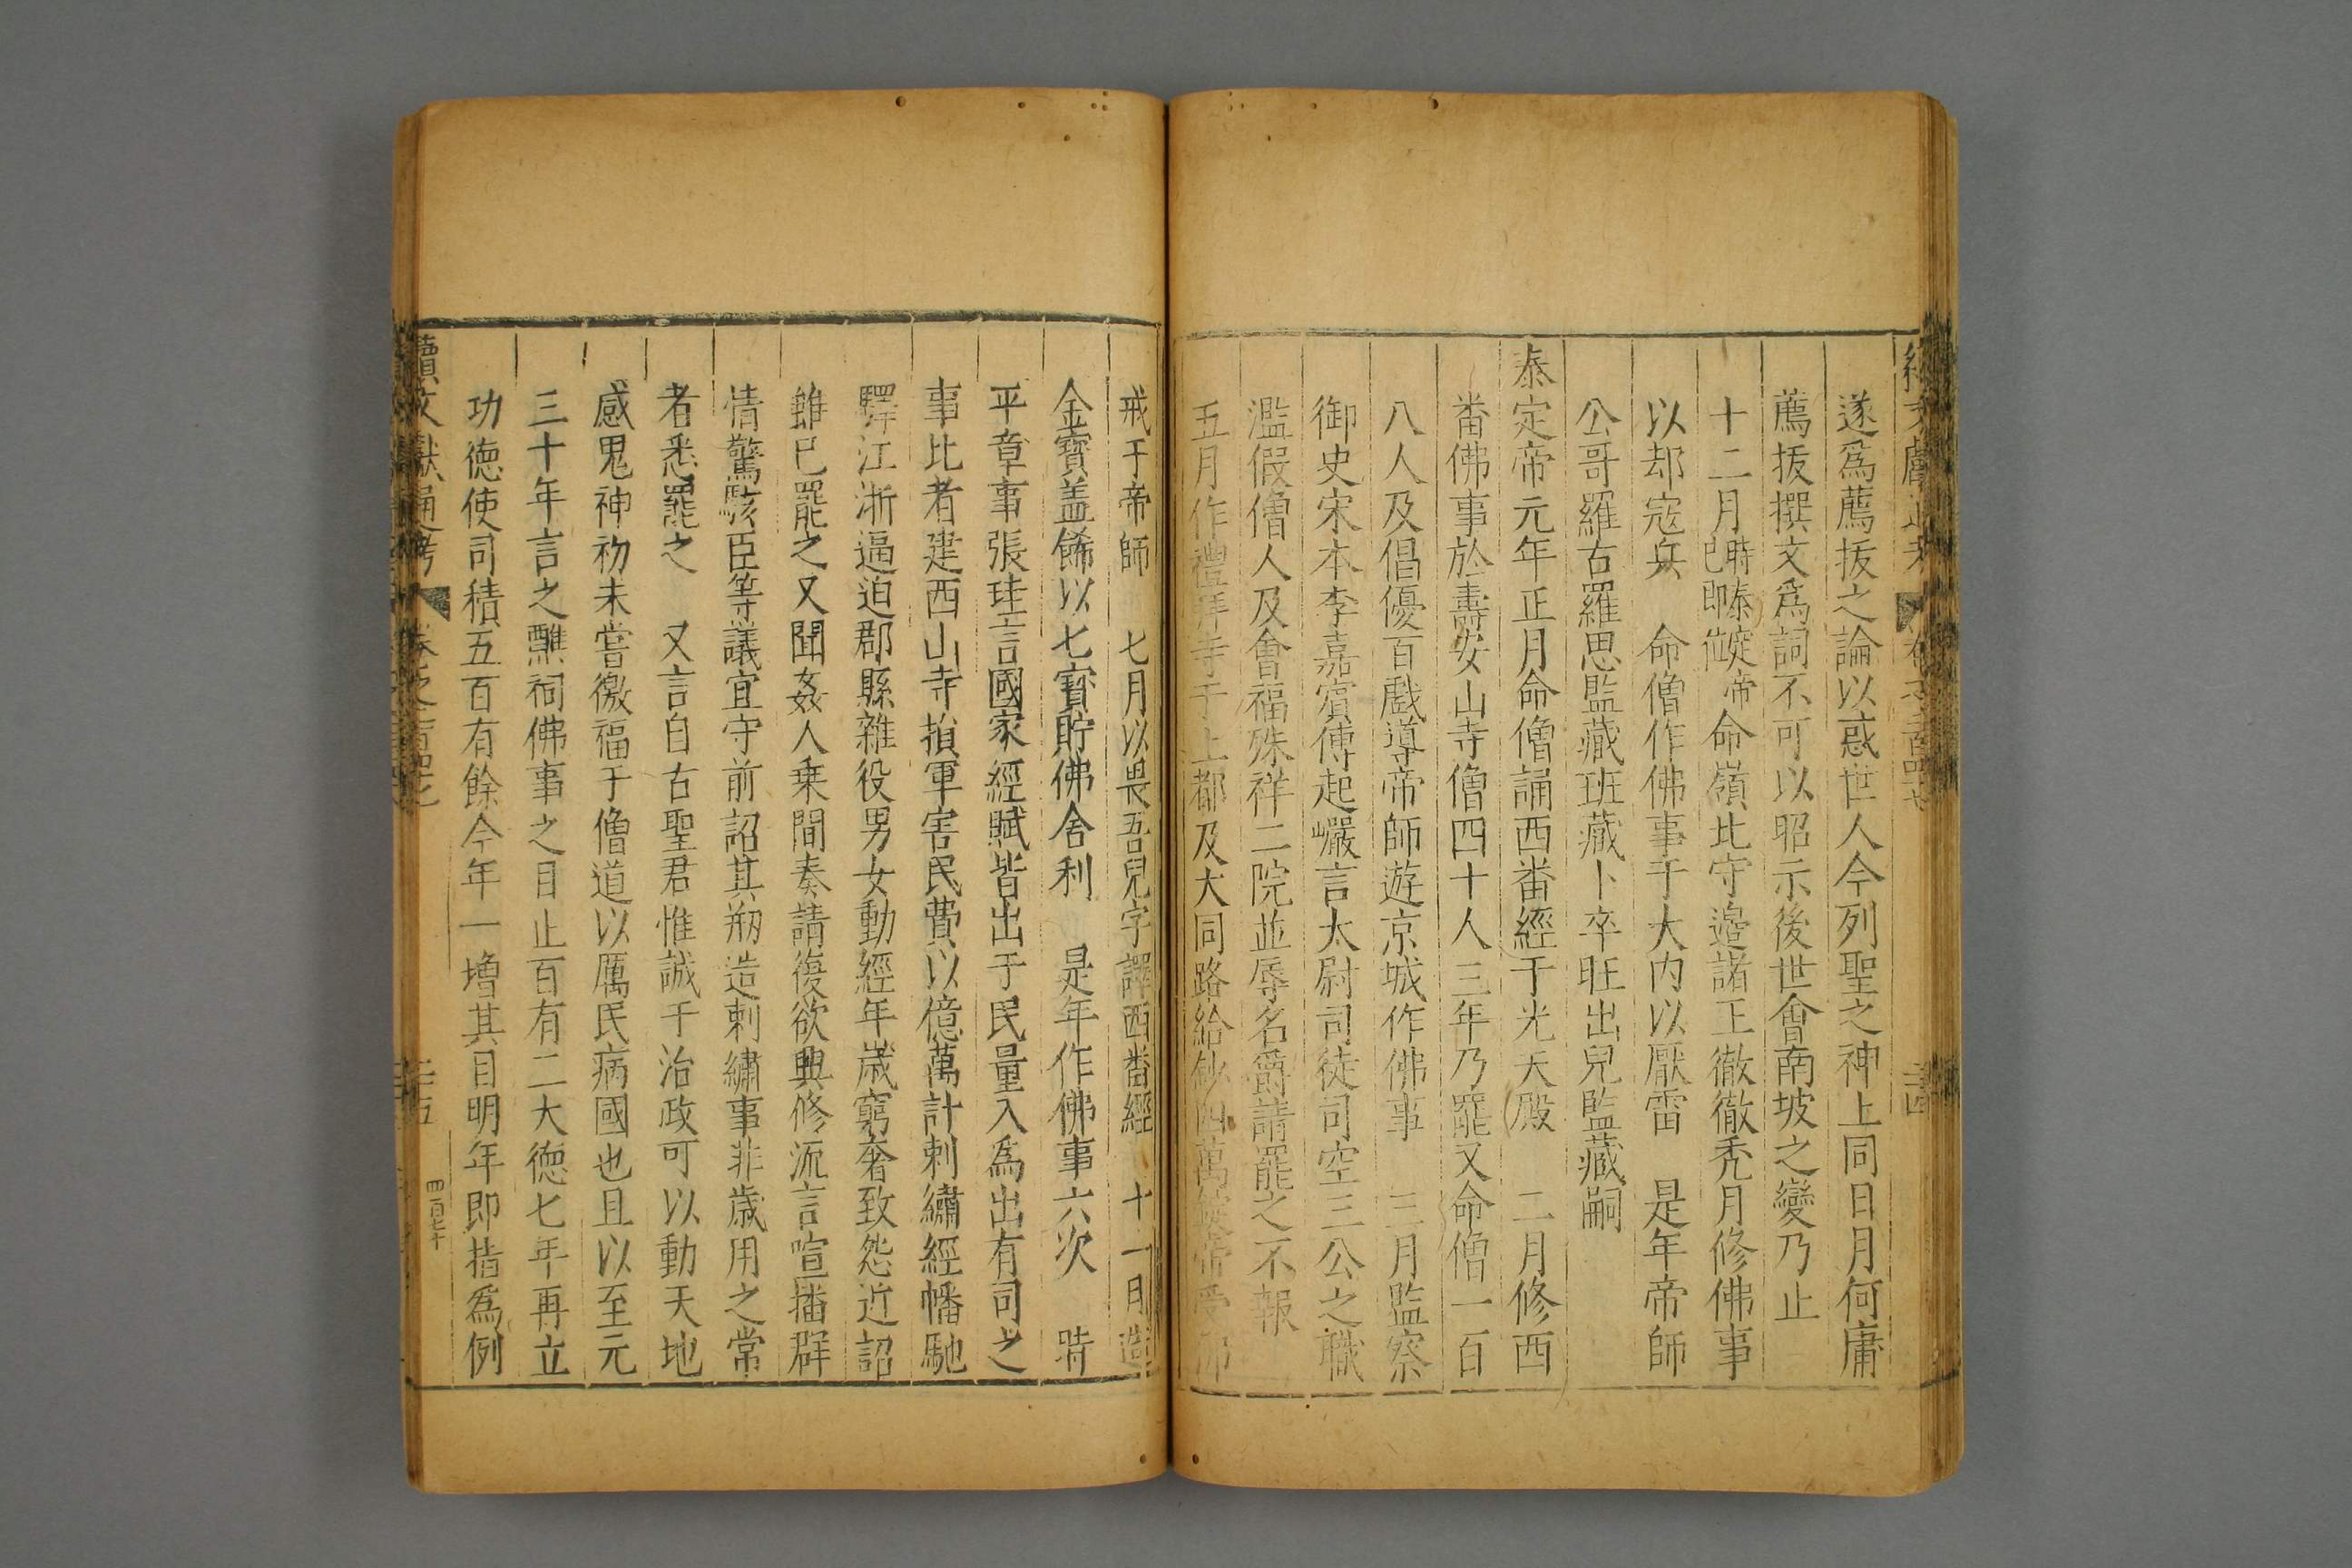 遂爲薦拔之論以惑世人今列聖之神上同日月何庸
薦拔撰文爲詞不可以昭示後世會南坡之變乃止
十二月時泰定帝已即位命嶺北守邊諸王徹徹禿月修佛事
以却寇兵 命僧作佛事于大内以厭雷 是年帝師
公哥羅古羅思監藏班藏卜卒旺出兒監藏嗣
泰定帝元年正月命僧誦西番經于光天殿 二月修西
番佛事於壽安山寺僧四十人三年乃罷又命僧一百
八人及倡優百戲導帝師遊京城作佛事 三月監察
御史宋本李嘉賓傅起巖言太尉司徒司空三公之職
濫假僧人及會福殊祥二院並辱名爵請罷之不報
五月作禮拜寺于上都及大同路給鈔四萬錠帝受佛
戒于帝師 七月以畏吾兒字譯西番經 十一月造
金寶盖餙以七寳貯佛舍利 是年作佛事六次 時
平章事張珪言國家經賦皆出于民量入爲出有司之
事比者建西山寺損軍害民費以億萬計刺繡經幡馳
驛江浙逼迫郡縣雜役男女動經年歲窮奢致怨近詔
雖已罷之又聞姦人乘間奏請復欲興修流言喧播群
情驚駭臣等議宜守前詔其刱造刺繡事非歲用之常
者悉罷之 又言自古聖君惟誠于治政可以動天地
感鬼神初未嘗徼福于僧道以厲民病國也且以至元
三十年言之醮祠佛事之目止百有二大德七年再立
功德使司積五百有餘今年一增其目明年即指爲例
續文獻通考 卷之 二十五
四百七十